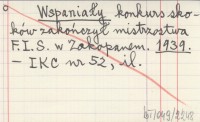 Wspaniały konkurs sko-
ków zakończył mistrzostwa
F.I.S. w Zakopanem. 1939.
– IKC nr 52, il.